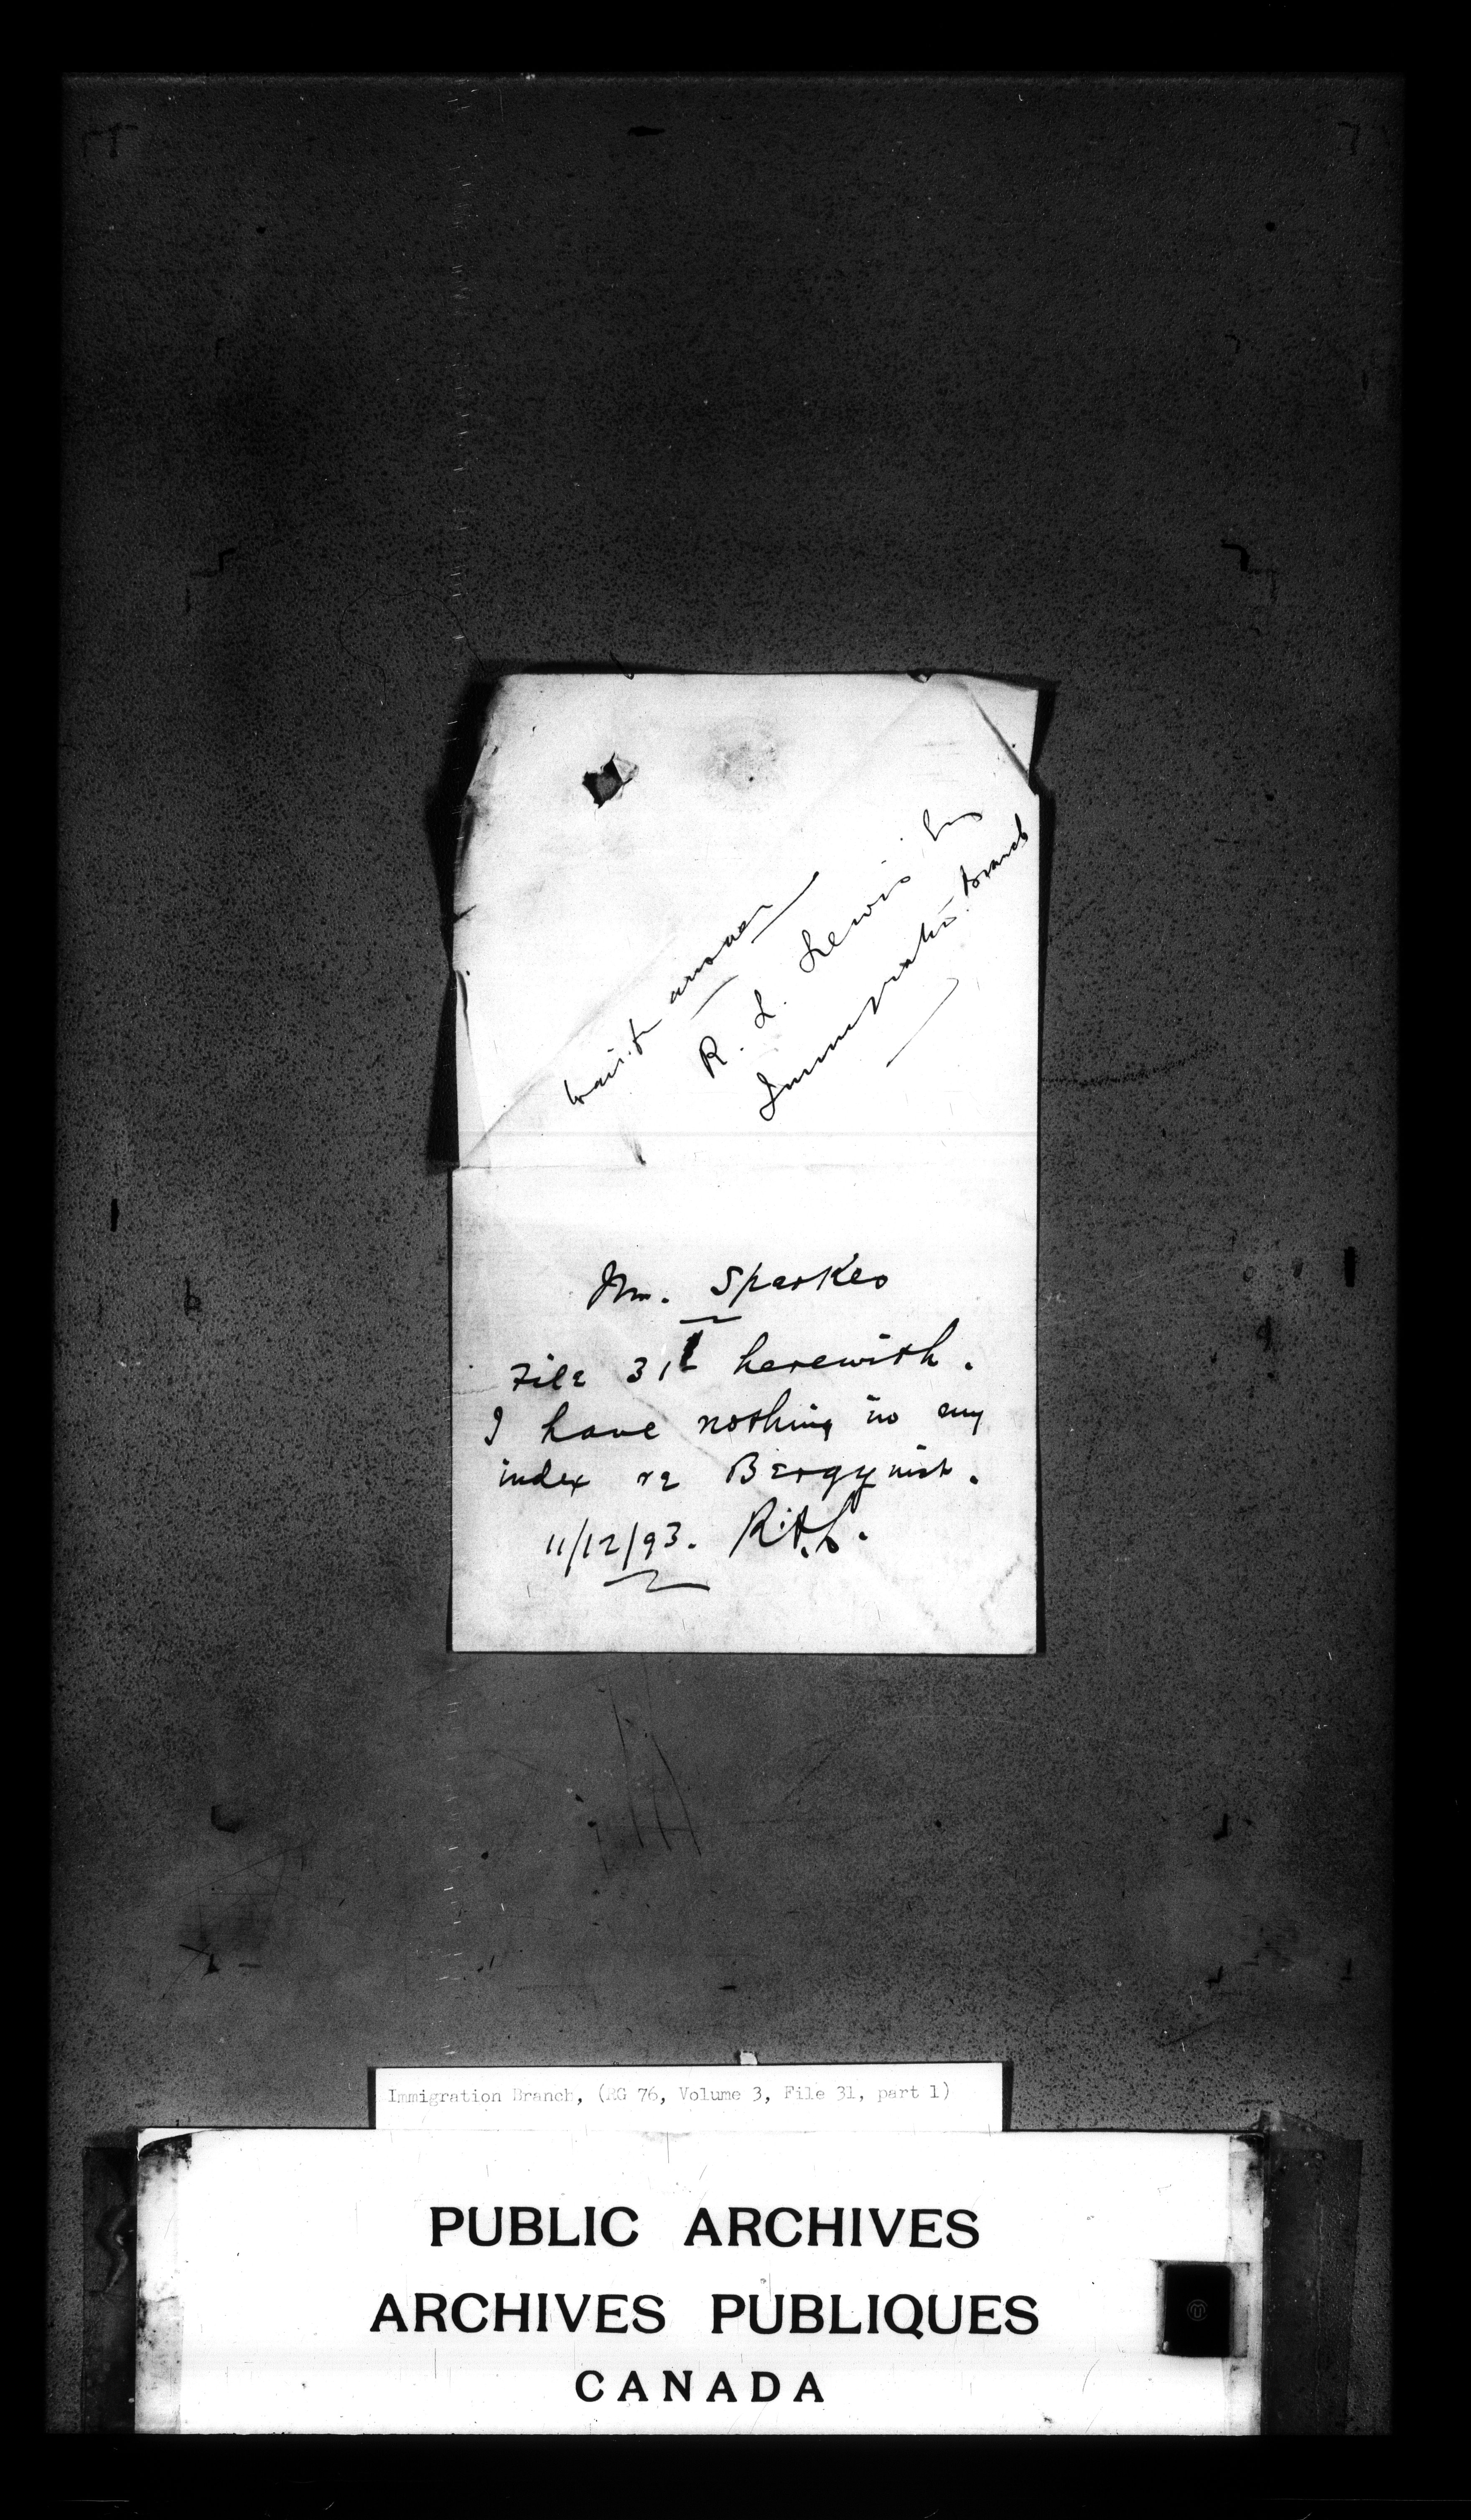 wait for answer
R. L. Lewis Esq
Immigration Branch
Mr. Sparkes
File 31 herewith.
I have nothing in my
index re Bergquist.
11/12/93. R.A.L.
Immigration Branch, (RG 76, Volume 3, File 31, part 1)
PUBLIC ARCHIVES
ARCHIVES PUBLIQUES
CANADA